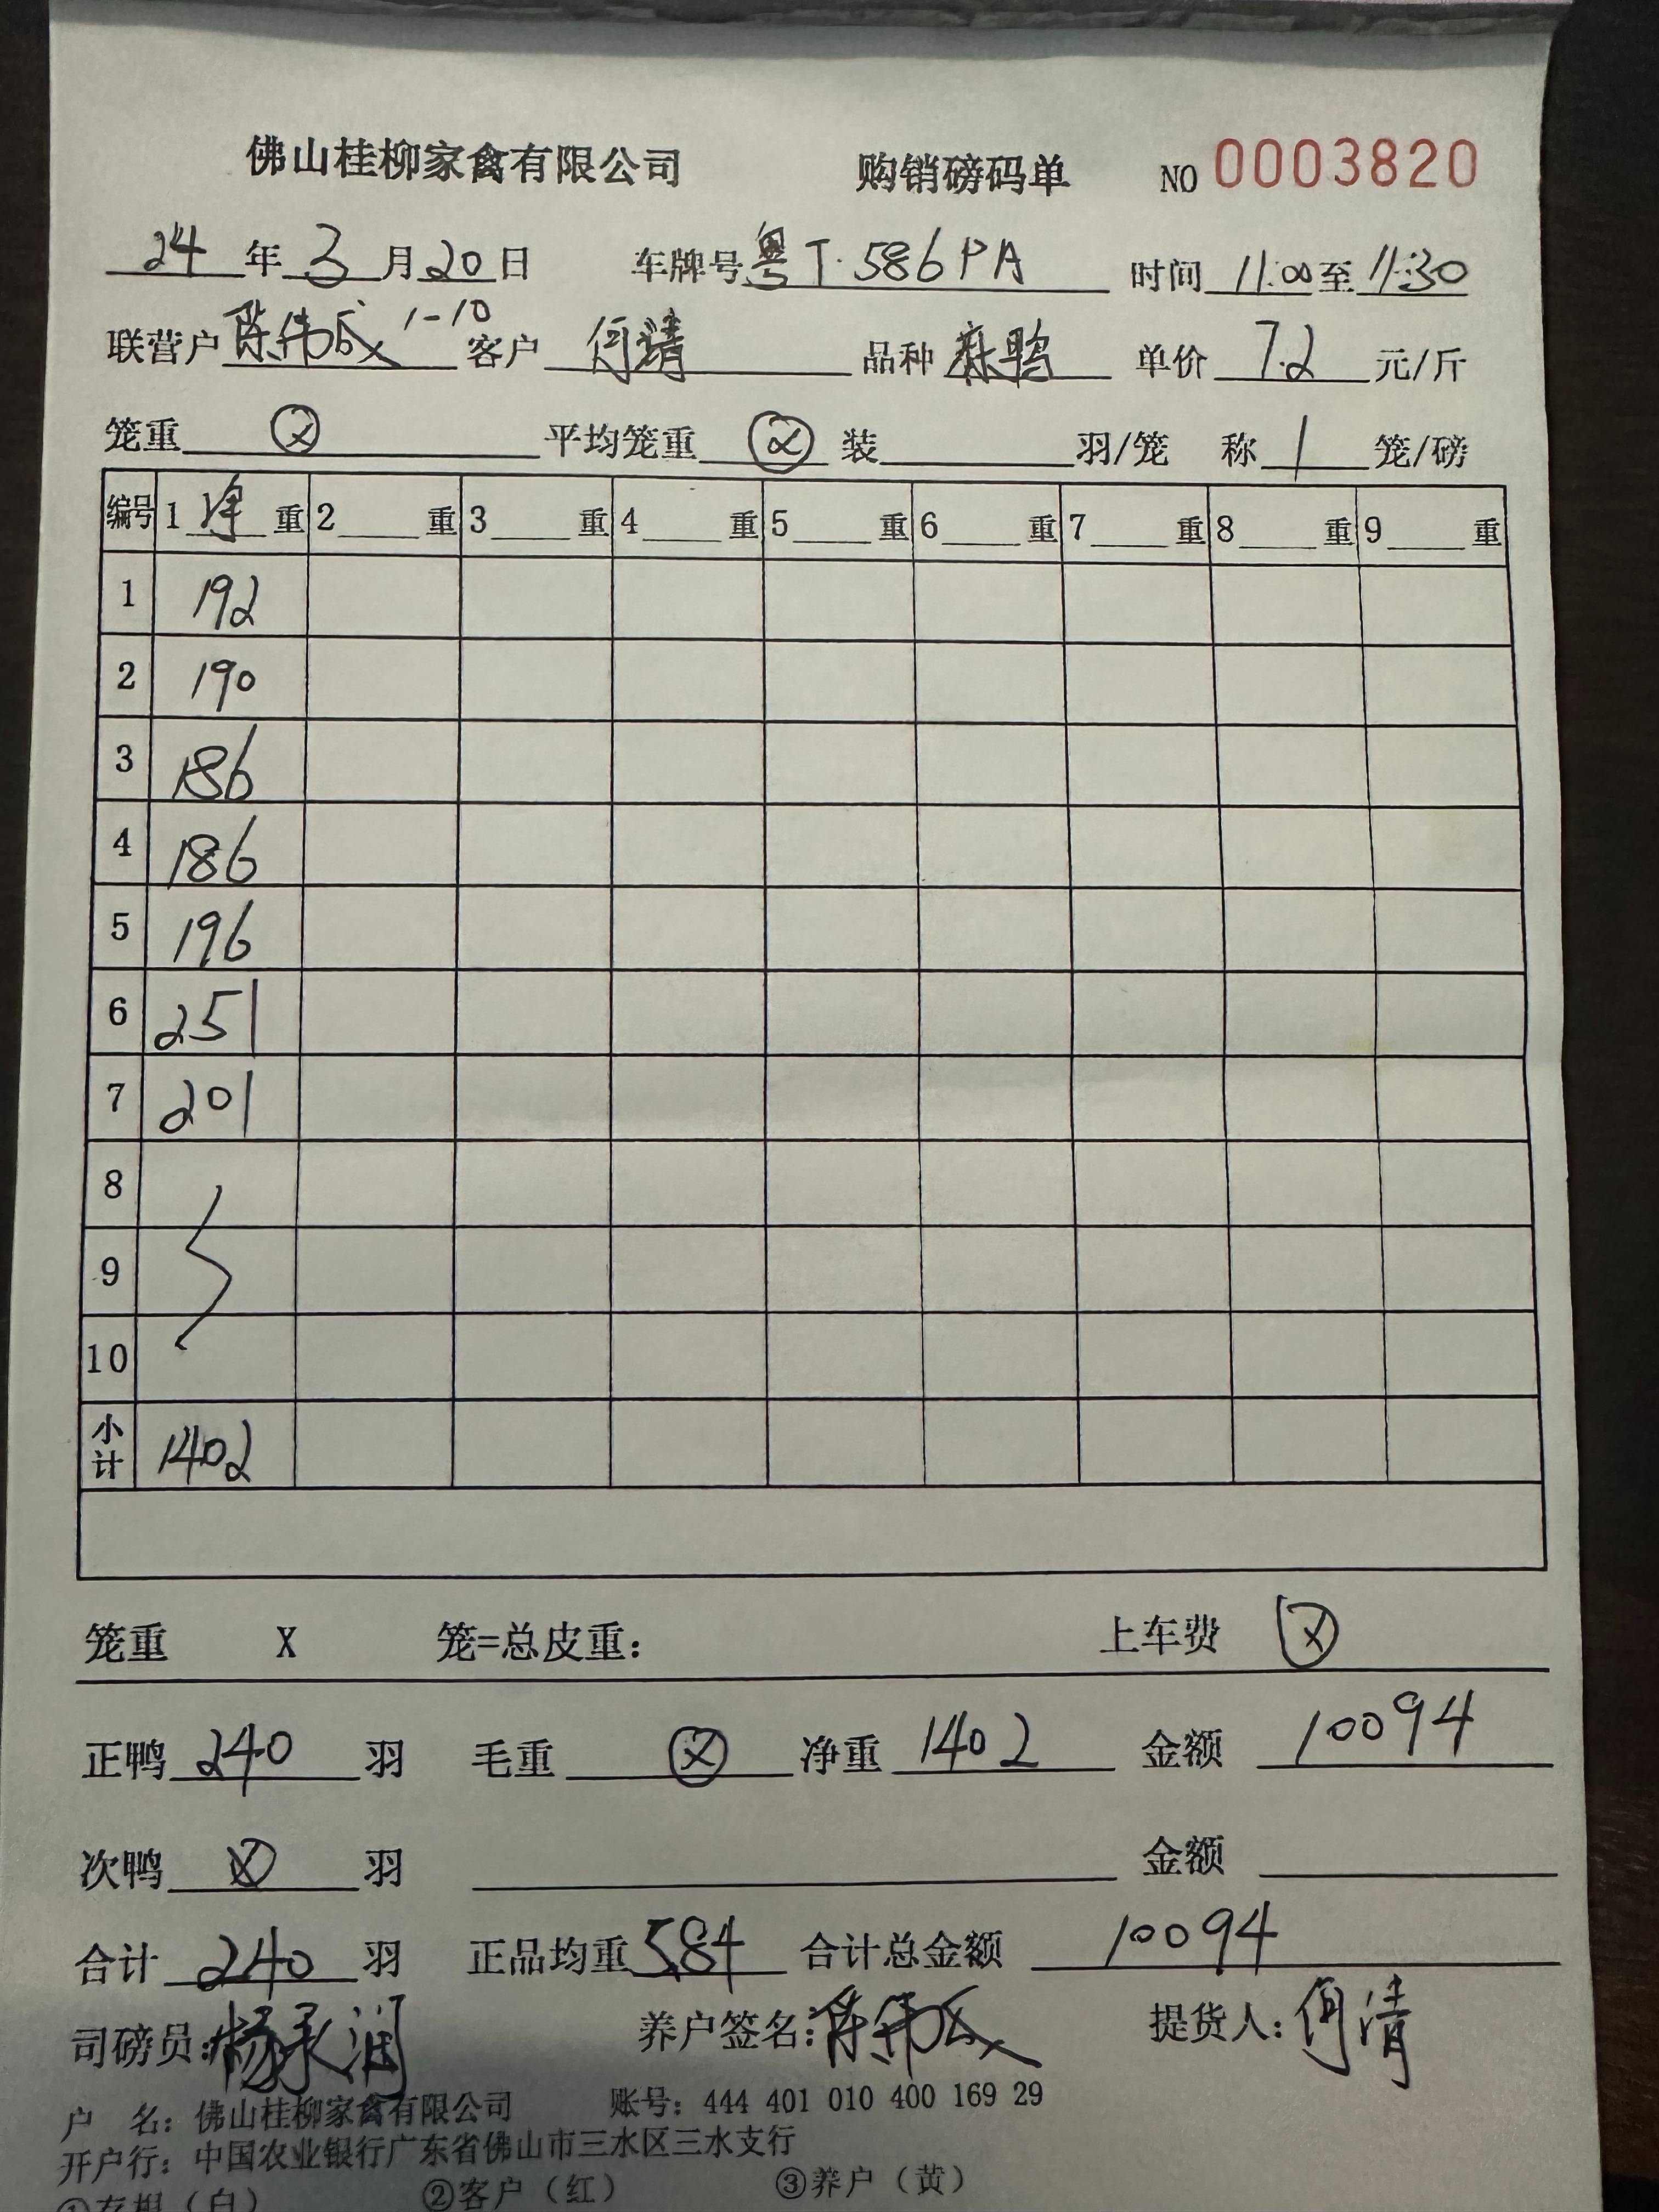 佛山桂柳家禽有限公司 购销磅码单 NO 0003820
24年3月20日 车牌号粤T·586PA 时间11:00至11:30
联营户陈伟成1-10 客户何清 品种麻鸭 单价7.2元/斤
笼重ⓧ 平均笼重ⓧ 装 羽/笼 称1笼/磅
编号 1净重 2 重 3 重 4 重 5 重 6 重 7 重 8 重 9 重
1 192
2 190
3 186
4 186
5 196
6 251
7 201
8
9
10
小计 1402
笼重 X 笼=总皮重: 上车费 ⓧ
正鸭240羽 毛重ⓧ 净重1402 金额10094
次鸭ⓧ羽 金额
合计240羽 正品均重5.84 合计总金额10094
司磅员:杨承润 养户签名:陈伟成 提货人:何清
户 名:佛山桂柳家禽有限公司 账号:444 401 010 400 169 29
开户行:中国农业银行广东省佛山市三水区三水支行
①存根(白) ②客户(红) ③养户(黄)